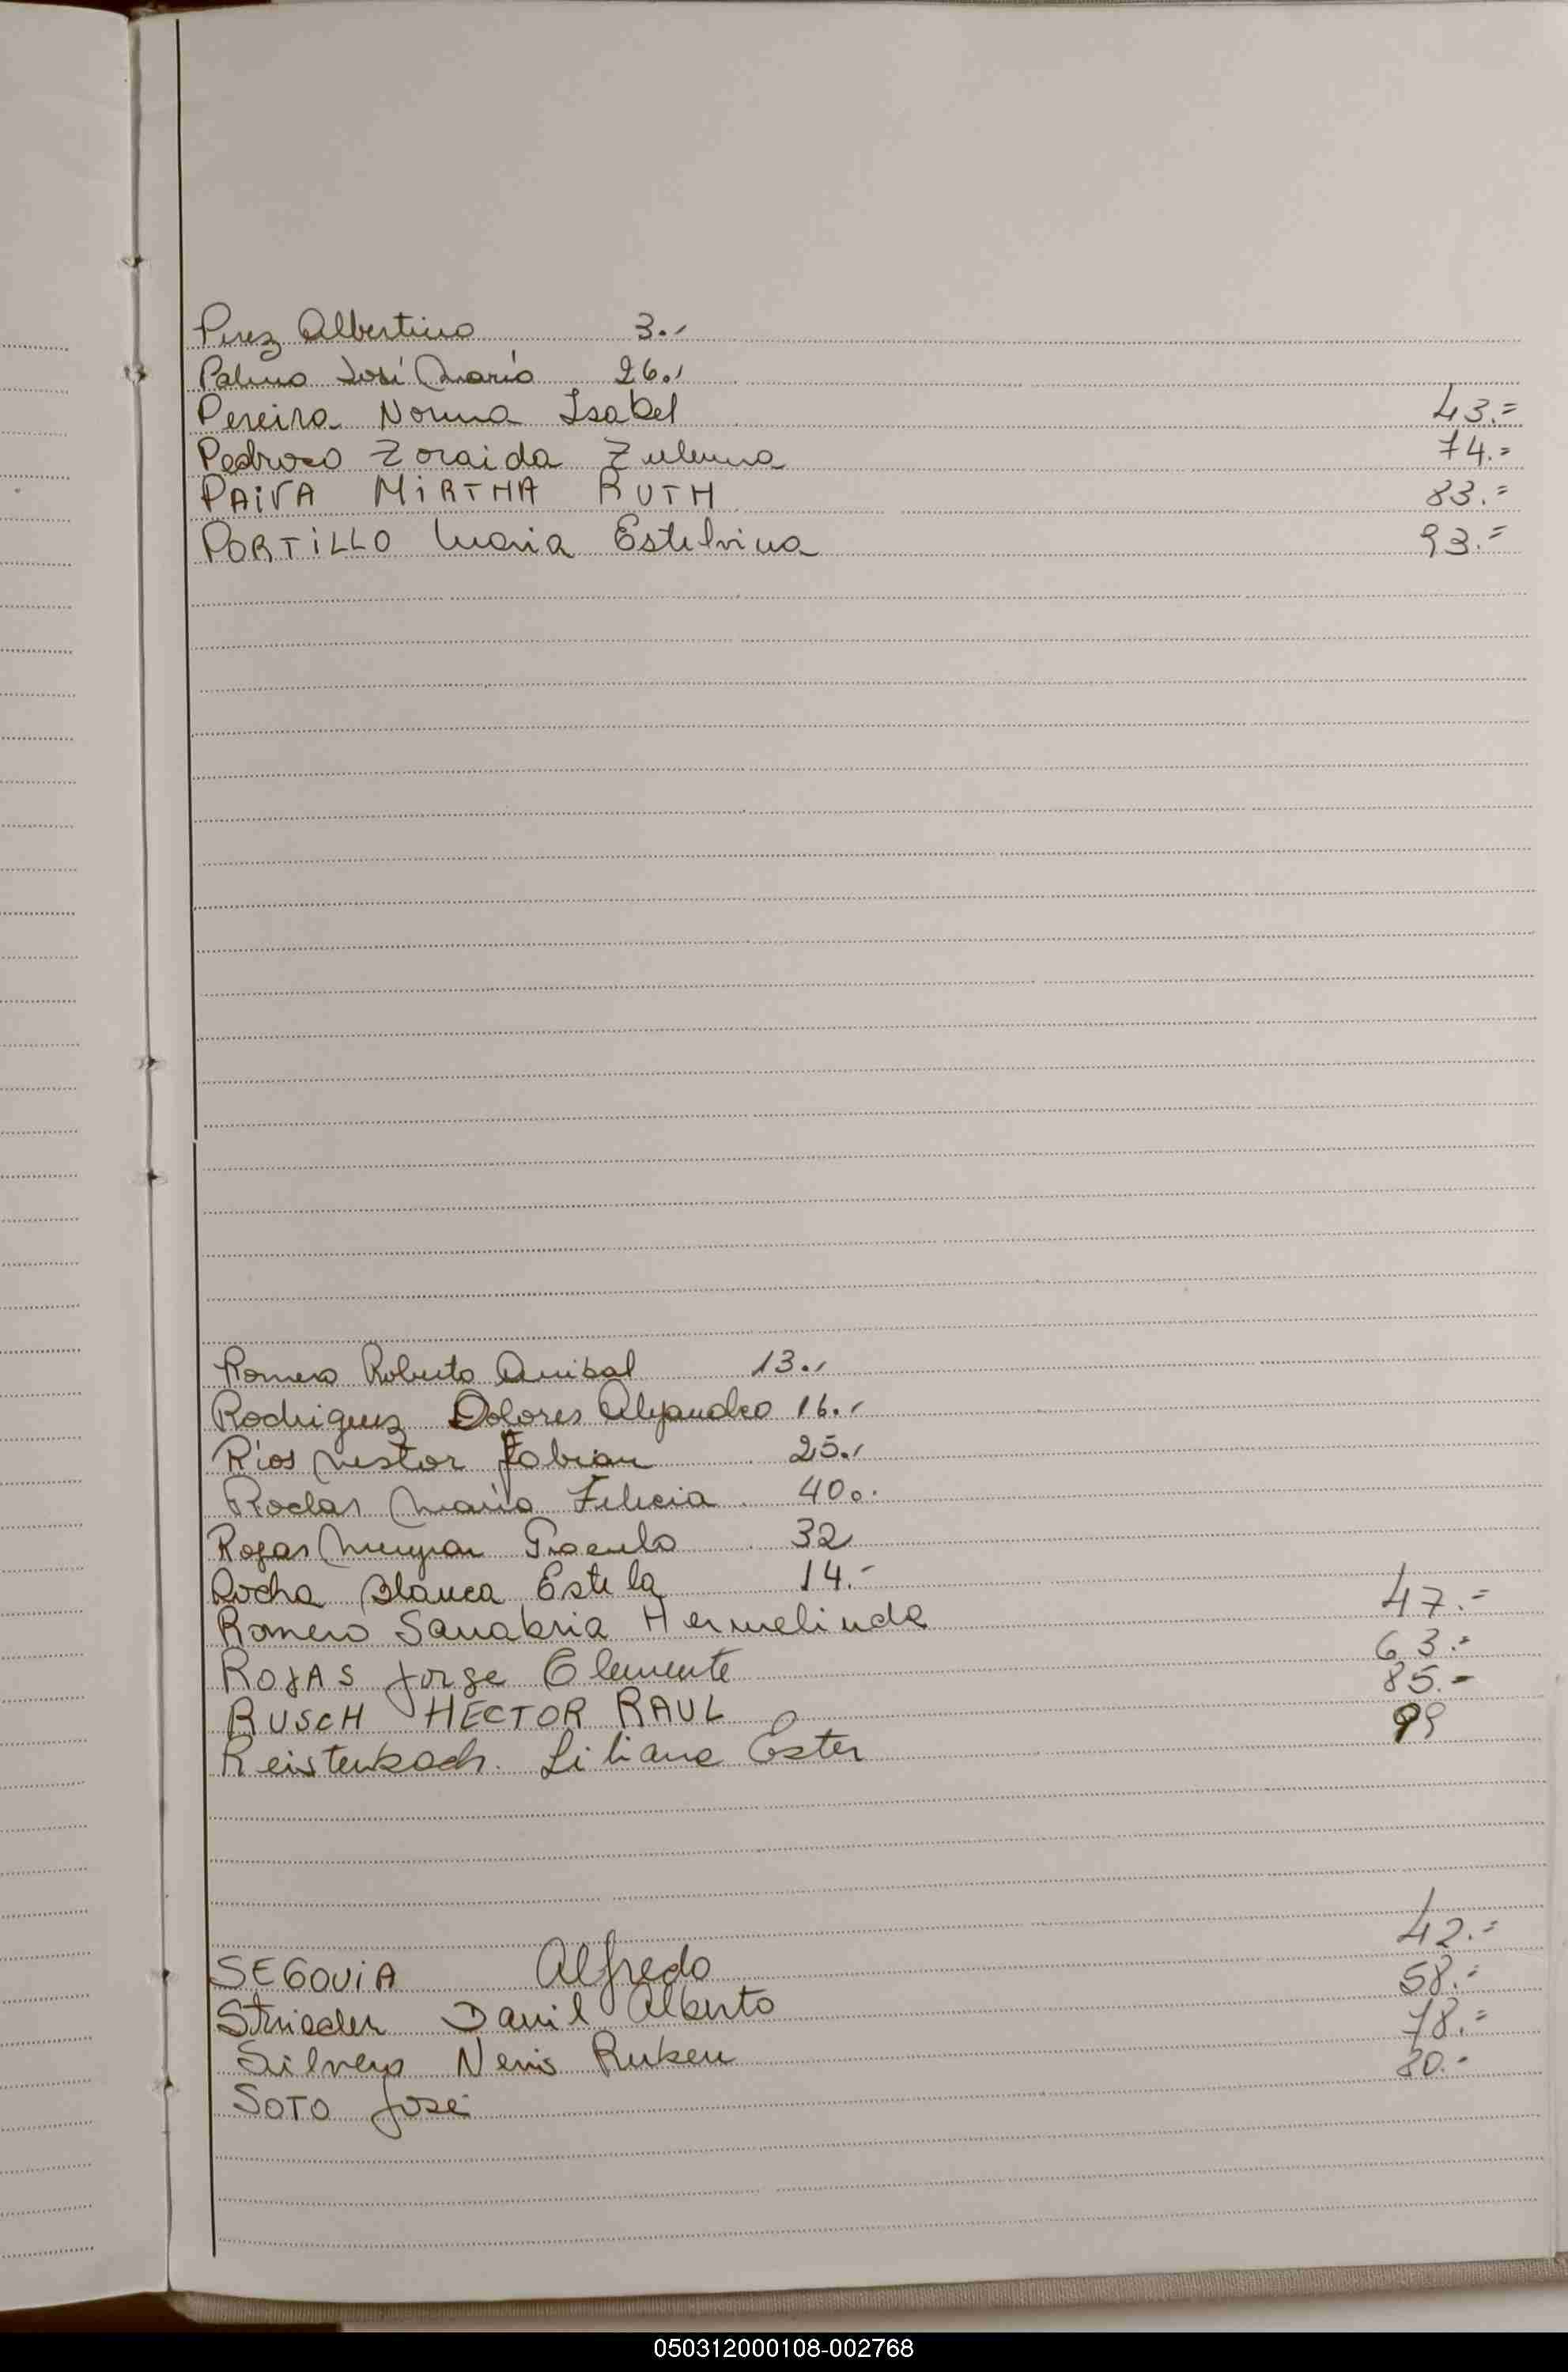 Perez Albertino 3.-
Palma José María 26.-
Pereira Norma Isabel 43.=
Pedrozo Zoraida Zulema 74.=
PAIVA MIRTHA RUTH 83.=
PORTILLO Maria Estelvina 93.=
Romero Roberto Anibal 13.-
Rodriguez Dolores Alejandro 16.-
Rios Nestor Fabian 25.-
Rodas María Felicia 40.-
Rojas 32
Rocha Blanca Estela 14.-
Romero Sanabria Hermelinda 47.=
ROJAS Jorge Clemente 63.=
RUSCH HECTOR RAUL 85.-
Reistenbach. Liliana Ester 99
SEGOVIA Alfredo 42.=
Strieder Daniel Alberto 58.=
Silveyo Neris Ruben 78.=
SOTO José 80.-
050312000108-002768